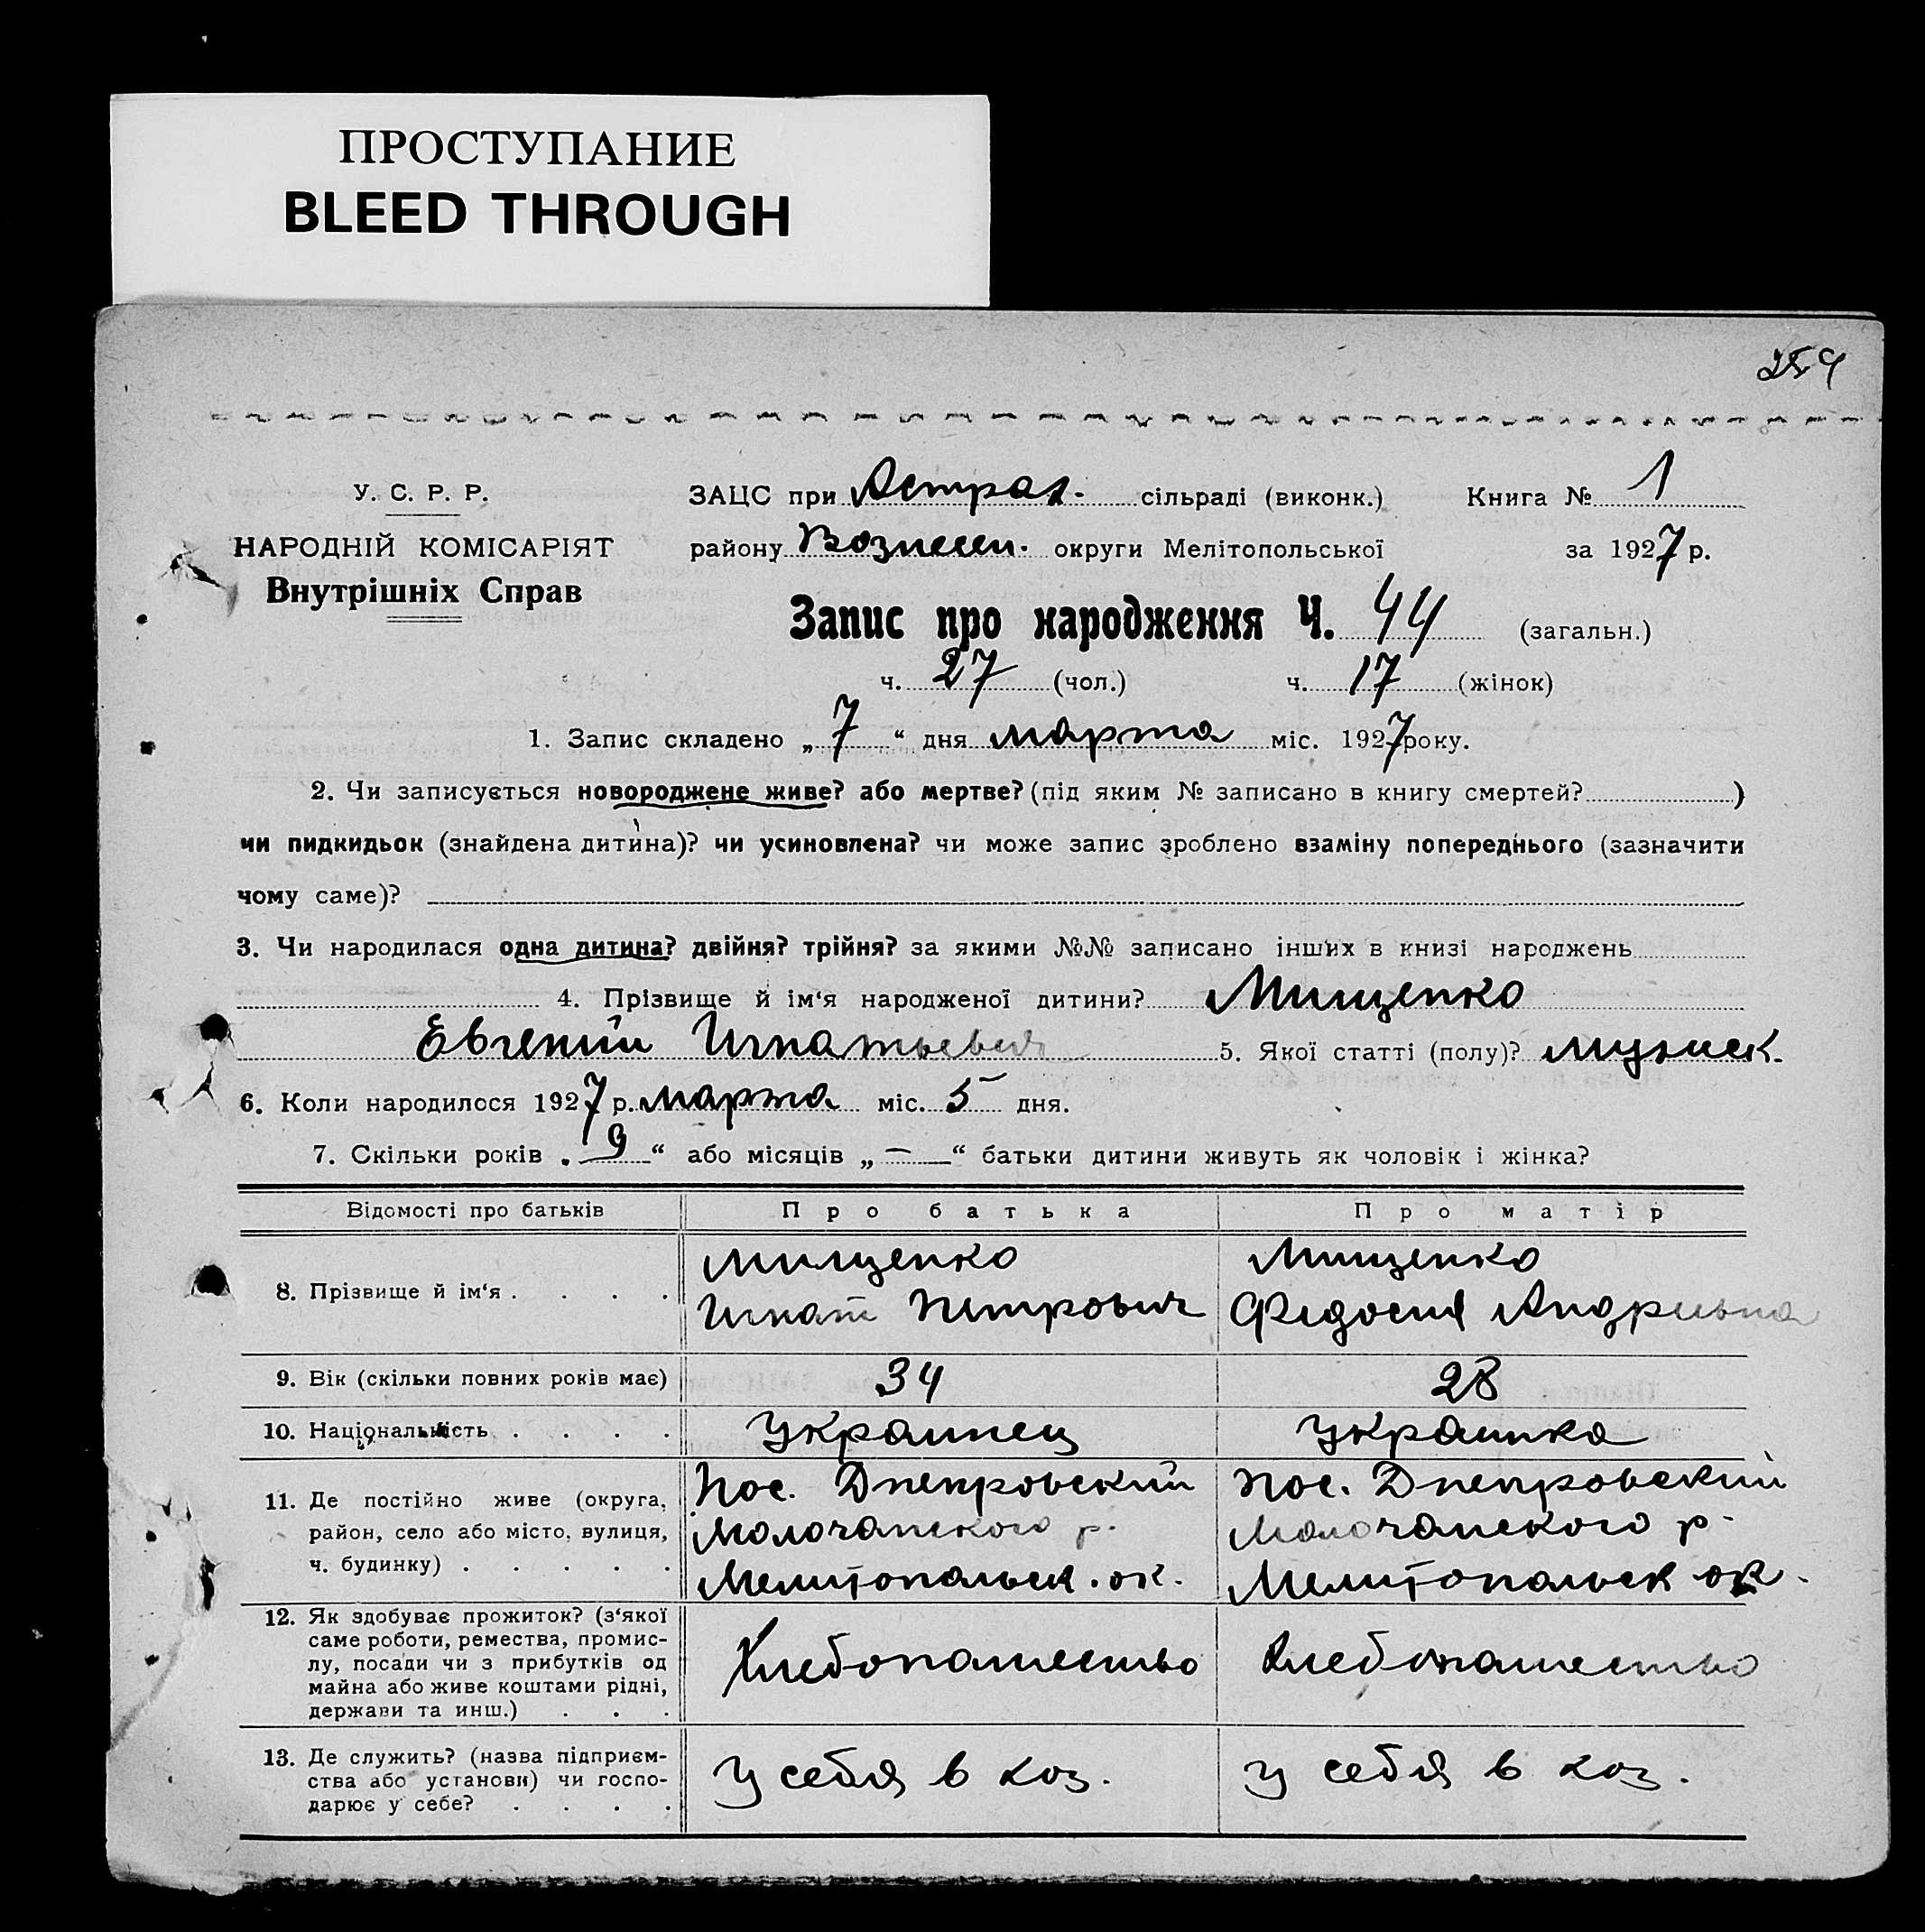 ПРОСТУПАНИЕ
BLEED THROUGH
254
У. С. Р. Р.
НАРОДНІЙ КОМІСАРІЯТ
Внутрішніх Справ
ЗАЦС при Астрах. сільраді (виконк.) Книга № 1
району Вознесен. округи Мелітопольської за 1927 р.
Запис про народження Ч. 44 (загальн.)
ч. 27 (чол.) ч. 17 (жінок)
1. Запис складено „7“ дня марта міс. 1927 року.
2. Чи записується новороджене живе? або мертве? (під яким № записано в книгу смертей? )
чи пидкидьок (знайдена дитина)? чи усиновлена? чи може запис зроблено взаміну попереднього (зазначити
чому саме)?
3. Чи народилася одна дитина? двійня? трійня? за якими №№ записано інших в книзі народжень
4. Прізвище й ім‘я народженої дитини? Мищенко
Евгений Игнатьевич 5. Якої статті (полу)? мужск.
6. Коли народилося 1927 р. марта міс. 5 дня.
7. Скільки років „9“ або місяців „—“ батьки дитини живуть як чоловік і жінка?
Відомості про батьків Про батька Про матір
8. Прізвище й ім‘я . . . .
Мищенко
Игнат Петрович
Мищенко
Федосия Андреевна
9. Вік (скільки повних років має) 34 28
10. Національність . . . . Украинец Украинка
11. Де постійно живе (округа,
район, село або місто, вулиця,
ч. будинку) . . . . .
Пос. Днепровский
Молочанского р.
Мелитопольск. ок.
Пос. Днепровский
Молочанского р.
Мелитопольск ок.
12. Як здобуває прожиток? (з‘якої
саме роботи, ремества, промис-
лу, посади чи з прибутків од
майна або живе коштами рідні,
держави та инш.) . . .
Хлебопашество
Хлебопашество
13. Де служить? (назва підприєм-
ства або установи) чи госпо-
дарює у себе? . . . .
У себя в хоз.
У себя в хоз.